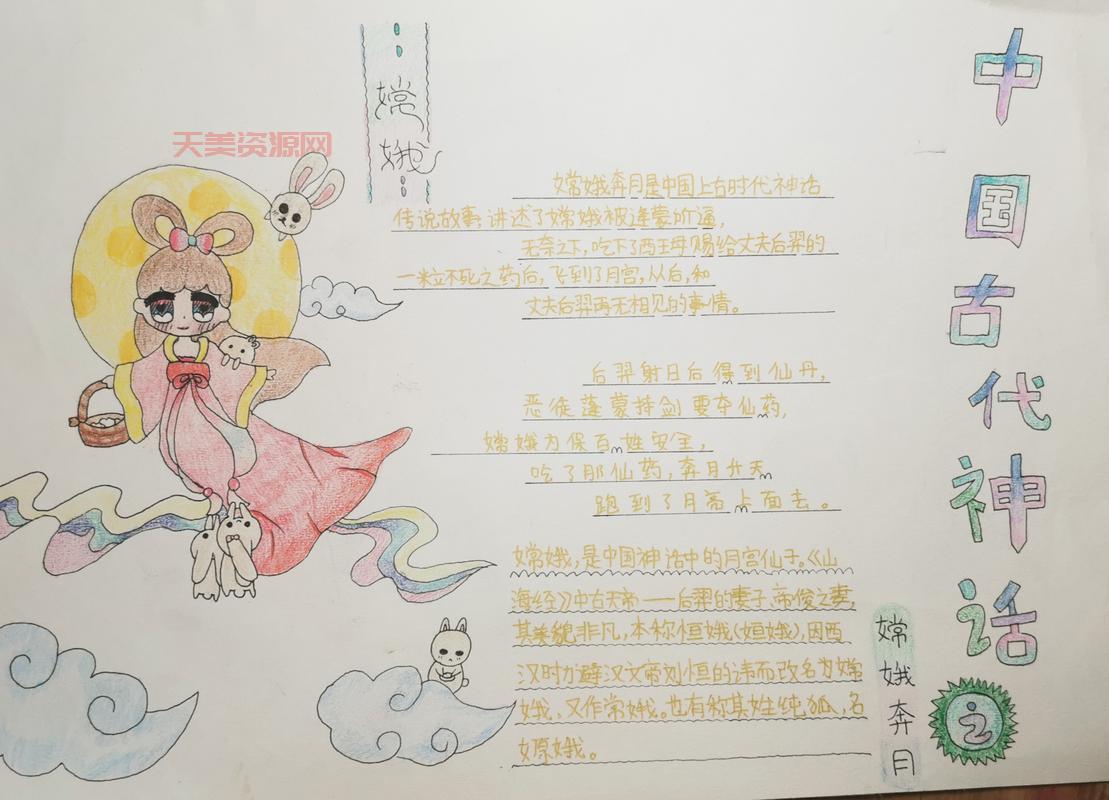 中国古代神话
之
嫦娥奔月
嫦娥
天美资源网
嫦娥奔月是中国上古时代神话
传说故事,讲述了嫦娥被逢蒙所逼,
无奈之下,吃下了西王母赐给丈夫后羿的
一粒不死之药后,飞到了月宫,从后,和
丈夫后羿再无相见的事情。
后羿射日后得到仙丹,
恶徒蓬蒙持剑要夺仙药,
嫦娥为保百姓安全,
吃了那仙药,奔月升天
跑到了月亮上面去。
嫦娥,是中国神话中的月宫仙子。《山
海经》中古天帝——后羿的妻子、帝俊之妻,
其美貌非凡,本称恒娥(姮娥),因西
汉时为避汉文帝刘恒的讳而改名为嫦
娥,又作常娥。也有称其姓纯狐,名
嫄娥。